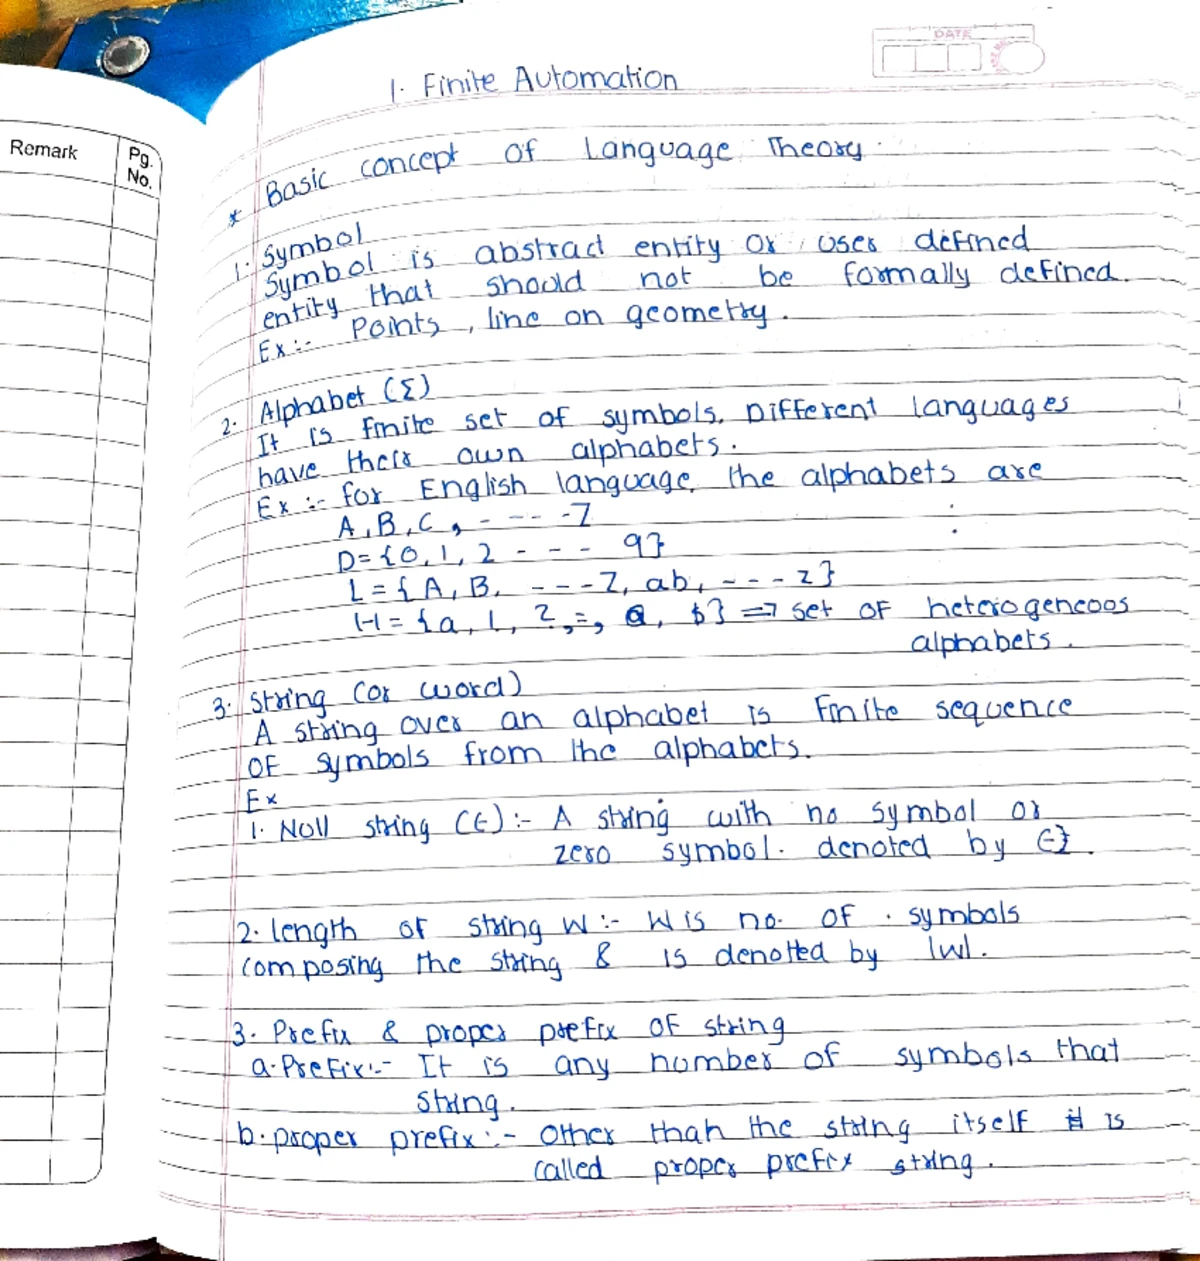 DATE
Remark
Pg.
No.
1. Finite Automation
* Basic concept of Language Theory.
1. Symbol
Symbol is abstract entity or user defined
entity that should not be formally defined.
Ex :- Points, line on geometry.
2. Alphabet (Σ)
It is finite set of symbols. Different languages
have their own alphabets.
Ex :- for English language, the alphabets are
A, B, C, - - - - Z
D = {0, 1, 2 - - - 9}
L = {A, B, - - - - Z, ab, - - - z}
H = {a, 1, ?, =, @, $} => set of heterogeneous
alphabets.
3. String (or word)
A string over an alphabet is finite sequence
of symbols from the alphabets.
Ex
1. Null string (ϵ) :- A string with no symbol or
zero symbol. denoted by ϵ}.
2. length of string W :- W is no. of symbols
composing the string & is denotted by |w|.
3. Prefix & proper prefix of string
a. Prefix :- It is any number of symbols that
string.
b. proper prefix :- Other than the string itself it is
called proper prefix string.